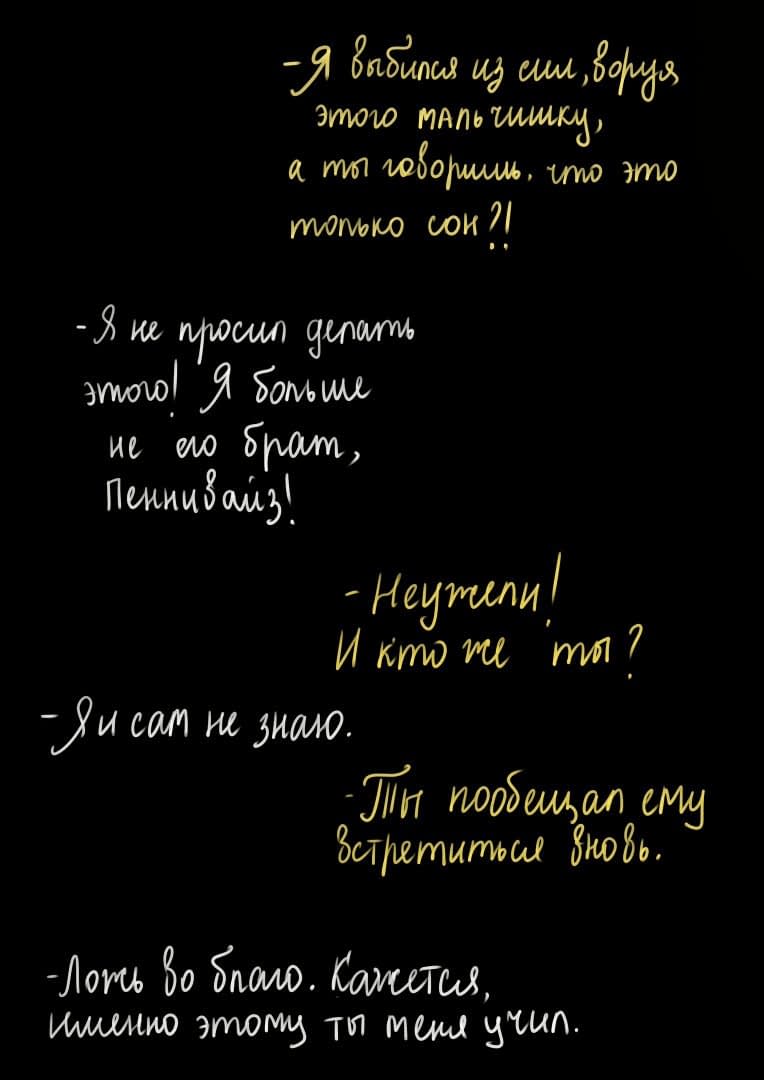 -Я выбился из сил, воруя
этого мальчишку,
а ты говоришь. что это
только сон?!
-Я не просил делать
этого! Я больше
не его брат,
Пеннивайз!
-Неужели!
И кто же ты?
-Я и сам не знаю.
-Ты пообещал ему
встретиться вновь.
-Ложь во благо. Кажется,
именно этому ты меня учил.